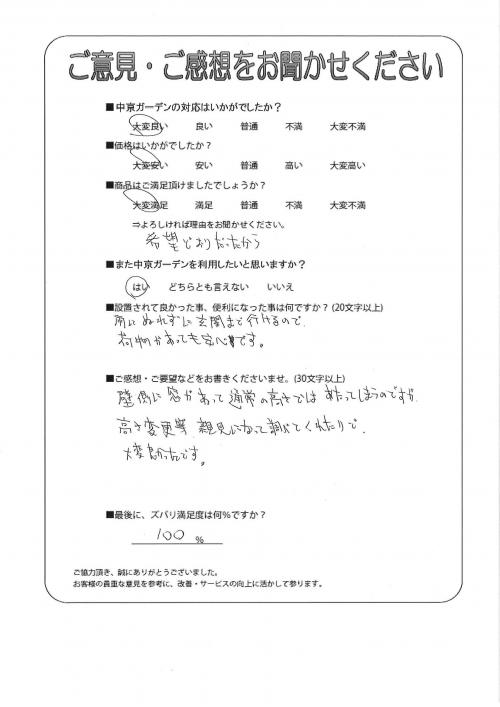 ご意見・ご感想をお聞かせください
■中京ガーデンの対応はいかがでしたか？
大変良い 良い 普通 不満 大変不満
■価格はいかがでしたか？
大変安い 安い 普通 高い 大変高い
■商品はご満足頂けましたでしょうか？
大変満足 満足 普通 不満 大変不満
⇒よろしければ理由をお聞かせください。
希望どおりだったから
■また中京ガーデンを利用したいと思いますか？
はい どちらとも言えない いいえ
■設置されて良かった事、便利になった事は何ですか？(20文字以上)
雨にぬれずに玄関まで行けるので、
荷物があっても安心です。
■ご感想・ご要望などをお書きくださいませ。(30文字以上)
壁側に窓があって通常の高さでは あたってしまうのですが
高さ変更等 親見になって調べてくれたりで、
大変良かったです。
■最後に、ズバリ満足度は何％ですか？
100 %
ご協力頂き、誠にありがとうございました。
お客様の貴重な意見を参考に、改善・サービスの向上に活かして参ります。